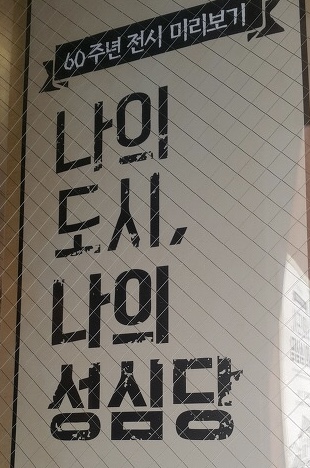 60주년 전시 미리보기
나의
도시,
나의
성심당